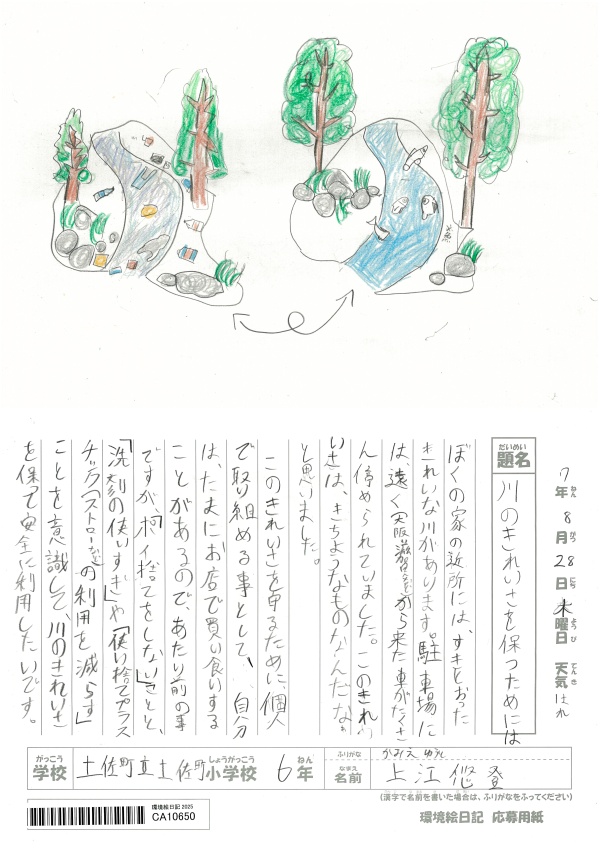 7年8月28日木曜日 天気 はれ
題名 川のきれいさを保つためには
ぼくの家の近所には、すきとおった
きれいな川があります。駐車場に
は、遠く(大阪、滋賀など)から来た車がたくさ
ん停められていました。このきれ
いさは、きちょうなものなんだな。
と思いました。
このきれいさを守るために、個人
で取り組める事として、、自分
は、たまにお店で買い食いする
ことがあるので、あたり前の事
ですが、「ポイ捨てをしない」ことと、
「洗剤の使いすぎ」や「使い捨てプラス
チック(ストローなど)の利用を減らす」
ことを意識して、川のきれいさ
を保って安全に利用したいです。
学校 土佐町立土佐町小学校 6年 ふりがな かみえ ゆうと
名前 上江 悠登
(漢字で名前を書いた場合は、ふりがなをふってください)
環境絵日記 2025
CA10650
環境絵日記 応募用紙